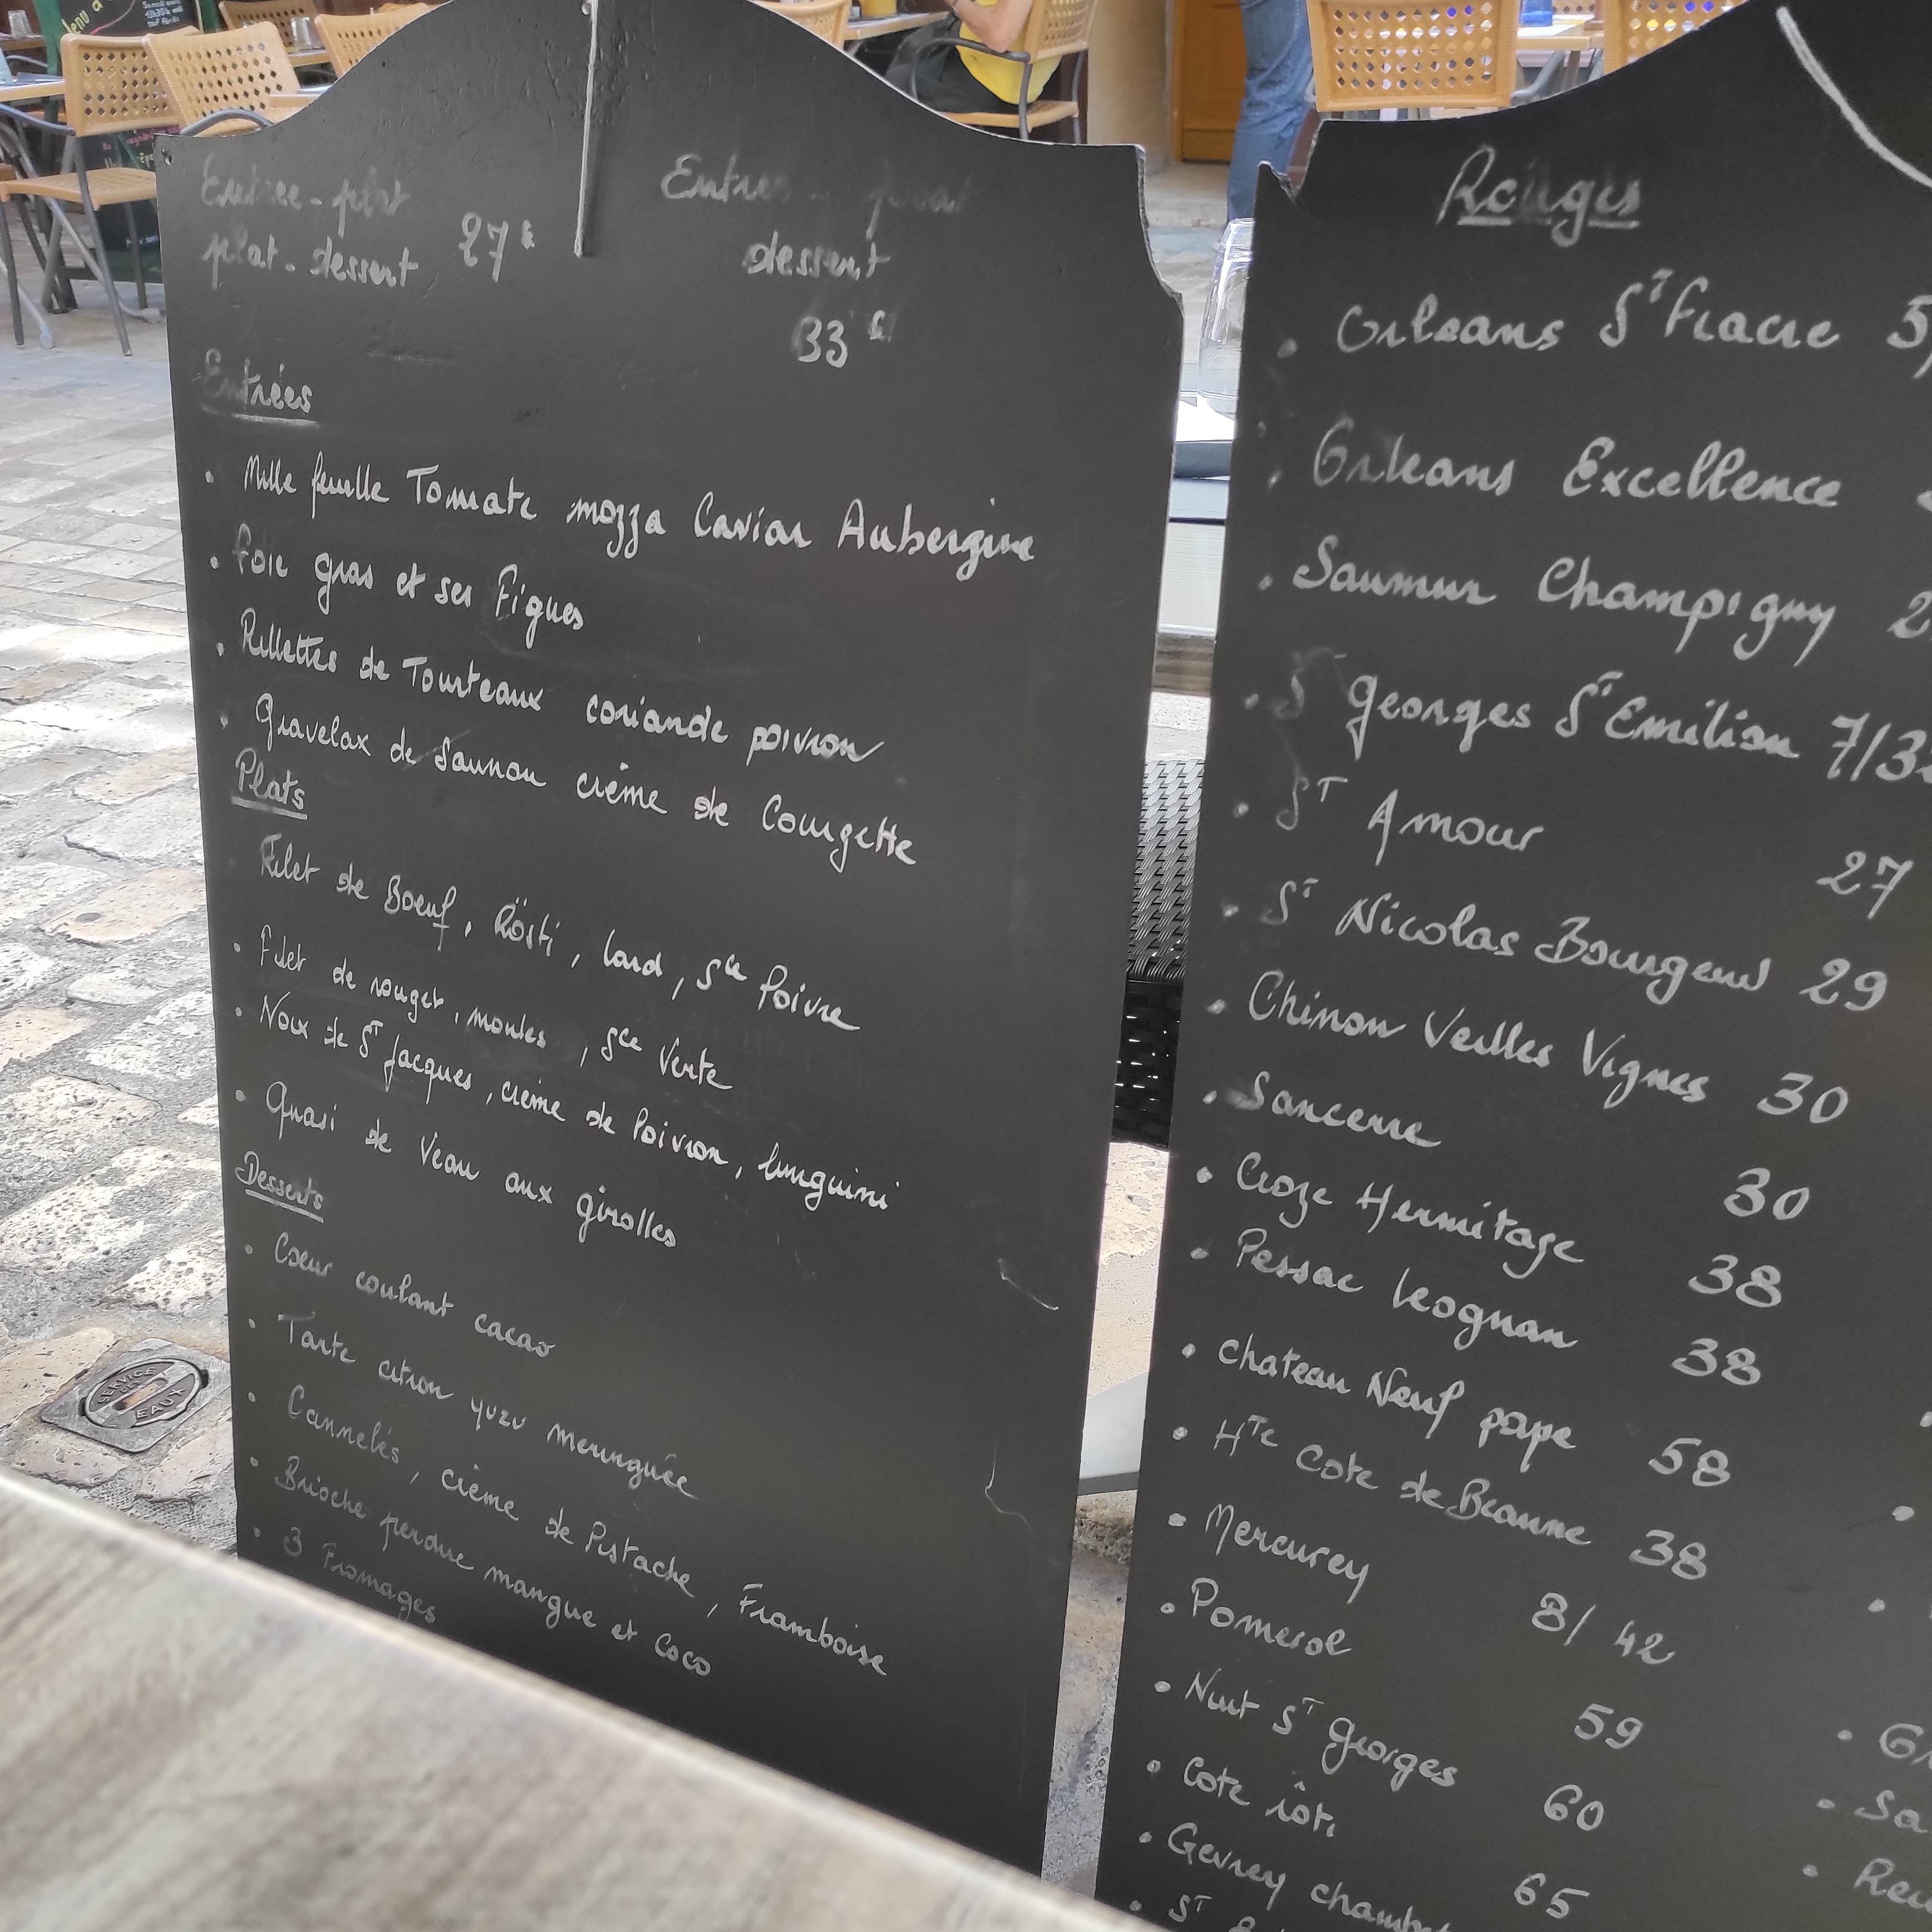 Entrée - plat
plat - dessert 27€
Entrée - plat
dessert
33€
Entrées
• Mille feuille Tomate mozza Caviar Aubergine
• Foie gras et ses Figues
• Rillettes de Tourteaux coriande poivron
• Gravelax de Saumon crème de Courgette
Plats
Filet de Boeuf, Rösti, lard, Sce Poivre
• Filet de rouget, moules, Sce Verte
• Noix de ST Jacques, crème de Poivron, linguini
• Quasi de Veau aux girolles
Desserts
• Coeur coulant cacao
• Tarte citron yuzu meringuée
• Cannelés, crème de Pistache, Framboise
• Brioche perdue mangue et Coco
• 3 Fromages
SERVICE
DES
EAUX
Rouges
• Orleans ST Fiacre 5,
• Orleans Excellence
• Saumur Champigny 2
• ST Georges ST Emilion 7/3
• ST Amour 27
• ST Nicolas Bourgeuil 29
• Chinon Veilles Vignes 30
• Sancerre 30
• Croze Hermitage 38
• Pessac leognan 38
• Chateau Neuf pape 58
• HTe Cote de Beaune 38
• Mercurey 8/42
• Pomerol 59
• Nuit ST Georges 60
• Cote rôti 65
• Gevrey chambe
• ST
• Sa